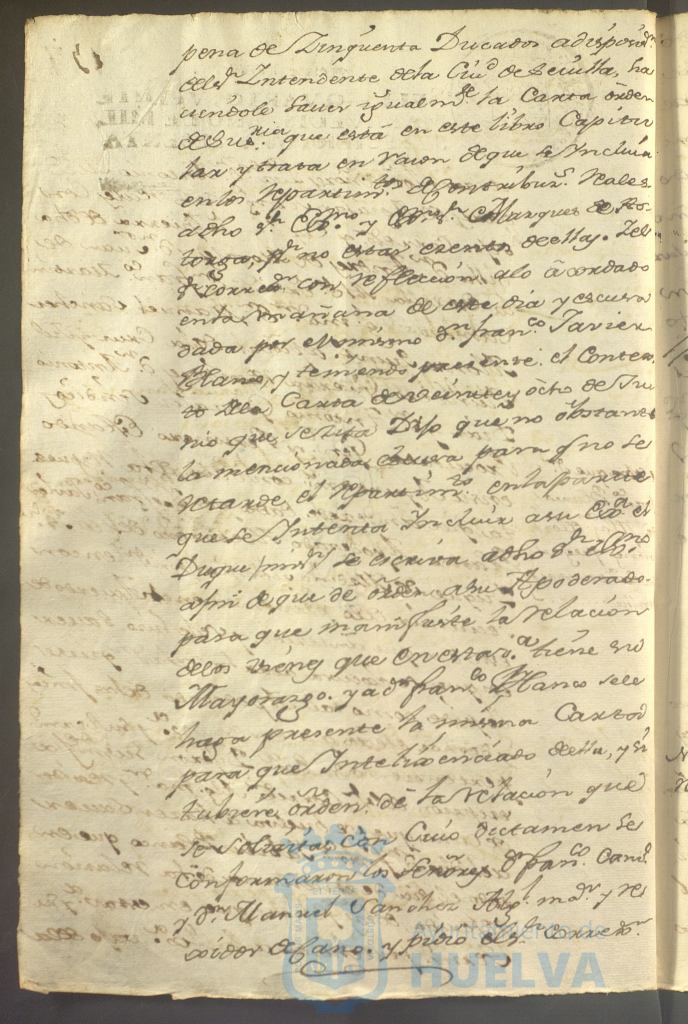 pena de Zinquenta Ducados a disposizn.
del Sr. Intendente de la Ciud. de Sevilla, ha
ciendole saver igualmte. la Carta órden
que está en este libro Capitu
lar y trata en razon de que se Incluia
en los Repartimtos. de Contribuzs. Reales
a dho Sr. Exmo. y Marques de As
torga, no estar exento de ellas. Y el
Sr. Corredr. con reflección a lo acordado
en la mañana de este dia y escusa
dada por el mismo Dn. franco. Javier
Blanco, y teniendo presente el Conten
to de la Carta de veinte y ócto de Ju
nio que se zita Dijo que no obstante
la mencionada escusa para q no se
retarde el Repartimto. en la parte
que se Intenta Incluir a su Exa. el
Duque mi Sr. se escriva a dho Sr. Exmo.
a fin de que de órden a su Apoderado
para que manifieste la relación
de los vienes que en esta va. tiene su
Mayorazgo. y a dn. franco. Blanco se le
haga presente la misma Carta
para que Inteligenciado de ella, y si
tubiere órden dé la relación que
se solicita, con Cuio dictamen se
conformaron los Señores Dn. franco. Cand.
y Dn. Manuel Sanchez Algl. mor. y re
xidor decano. y pidio el Sr. Corredr.
Ayuntamiento de
HUELVA